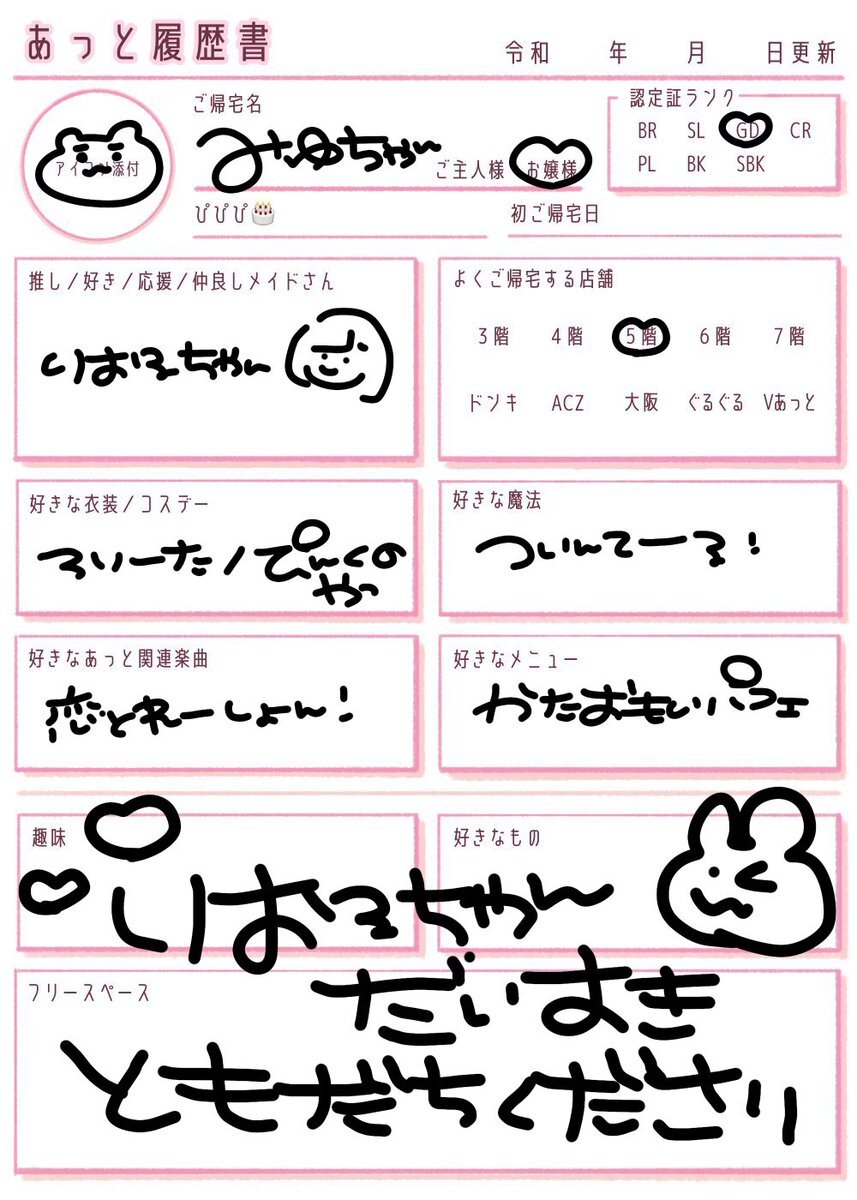 あっと履歴書
令和 年 月 日更新
アイコン添付
ご帰宅名
みゆちゃん
ご主人様 お嬢様
認定証ランク
BR SL GD CR
PL BK SBK
ぴぴぴ🎂
初ご帰宅日
推し/好き/応援/仲良しメイドさん
りおるちゃん
よくご帰宅する店舗
3階 4階 5階 6階 7階
ドンキ ACZ 大阪 ぐるぐる Vあっと
好きな衣装/コスデー
ろりーた/ぴんくの
やつ
好きな魔法
ついんてーる!
好きなあっと関連楽曲
恋とれーしょん!
好きなメニュー
かたおもいパフェ
趣味
好きなもの
りおるちゃん
フリースペース
だいすき
ともだちください